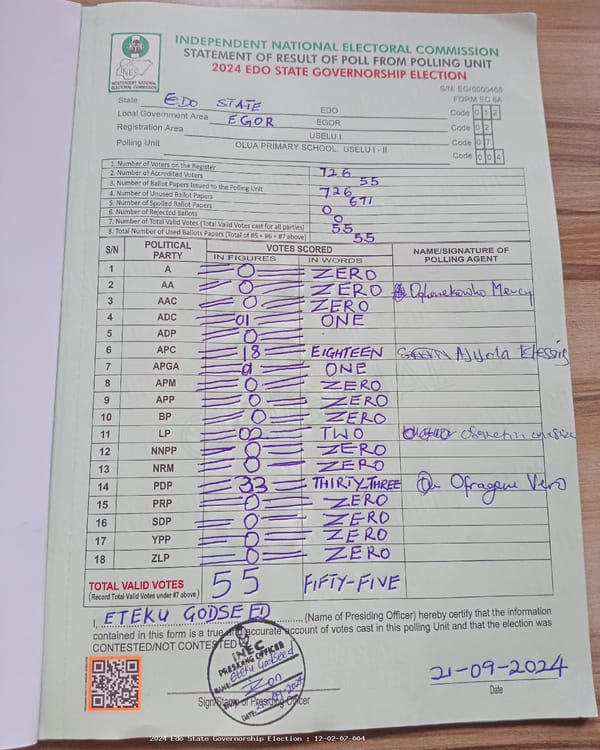 INEC
INDEPENDENT NATIONAL
ELECTORAL COMMISSION
INDEPENDENT NATIONAL ELECTORAL COMMISSION
STATEMENT OF RESULT OF POLL FROM POLLING UNIT
2024 EDO STATE GOVERNORSHIP ELECTION
S/N EG/0000468
FORM EC 8A
State EDO STATE EDO Code 0 1 2
Local Government Area EGOR EGOR Code 0 2
Registration Area USELU I Code 0 7
Polling Unit OLUA PRIMARY SCHOOL USELU I - II Code 0 0 4
1. Number of Voters on the Register 726
2. Number of Accredited Voters 55
3. Number of Ballot Papers Issued to the Polling Unit 726
4. Number of Unused Ballot Papers 671
5. Number of Spoiled Ballot Papers 0
6. Number of Rejected Ballots 0
7. Number of Total Valid Votes (Total Valid Votes cast for all parties) 55
8. Total Number of Used Ballots Papers (Total of #5 + #6 + #7 above) 55
S/N POLITICAL PARTY VOTES SCORED NAME/SIGNATURE OF POLLING AGENT
IN FIGURES IN WORDS
1 A 0 ZERO
2 AA 0 ZERO Mercy
3 AAC 0 ZERO
4 ADC 01 ONE
5 ADP 0
6 APC 18 EIGHTEEN Blessing
7 APGA 01 ONE
8 APM 0 ZERO
9 APP 0 ZERO
10 BP 0 ZERO
11 LP 02 TWO
12 NNPP 0 ZERO
13 NRM 0 ZERO
14 PDP 33 THIRTY-THREE Vero
15 PRP 0 ZERO
16 SDP 0 ZERO
17 YPP 0 ZERO
18 ZLP 0 ZERO
TOTAL VALID VOTES 55 FIFTY-FIVE
(Record Total Valid Votes under #7 above)
I, ETEKU GODSEED (Name of Presiding Officer) hereby certify that the information
contained in this form is a true and accurate account of votes cast in this polling Unit and that the election was
CONTESTED/NOT CONTESTED
INEC
PRESIDING OFFICER
NAME: Eteku Godseed
DATE: 21-09-2024
Sign/Stamp of Presiding Officer
21-09-2024
Date
2024 Edo State Governorship Election : 12-02-07-004